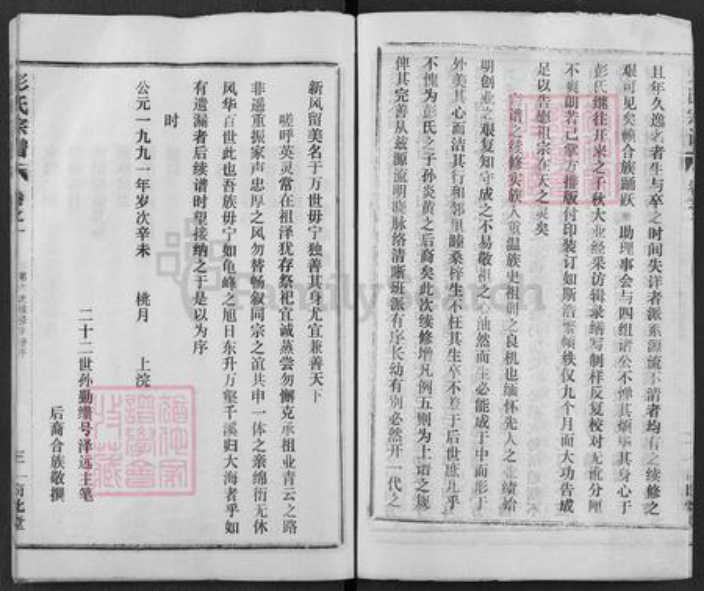 且年久逸名者生与卒之时间失详者派系源流不清者均有之续修之
艰可见矣赖合族踊跃 助理事会与四组诸公不惮其烦毕其身心于
彭氏继往开来之千秋大业经采访辑录缮写制样反复校对无讹分厘
不爽朗若已掌方排版付印装订如斯浩繁帧轶仅九个月而大功告成
足以告慰祖宗在天之灵矣
谱之续修实族人重温族史祖训之良机也缅怀先人之业绩始
明创业之艰复知守成之不易敬祖之心油然而生必能成于中而形于
外美其心而洁其行和邻里睦桑梓生不枉其生卒不羞于后世庶几乎
不愧为彭氏之子孙炎黄之后裔矣此次续修增凡例五则为上谱之规
俾其完善从兹源流明晓脉络清晰班派有序长幼有别必然开一代之
新风留美名于万世毋宁独善其身尤宜兼善天下
嗟呼英灵常在祖泽犹存祭祀宜诚蒸尝勿懈克承祖业青云之路
非遥重振家声忠厚之风勿替畅叙同宗之谊共申一体之亲绵衍无休
风华百世此也吾族毋宁如龟峰之旭日东升万壑千溪归大海者乎如
有遗漏者后续谱时望接纳之于是以为序
时
公元一九九一年岁次辛未 桃月 上浣
二十二世孙勤继号泽远主笔
后裔合族敬撰
彭氏宗谱
卷之一
FamilySearch